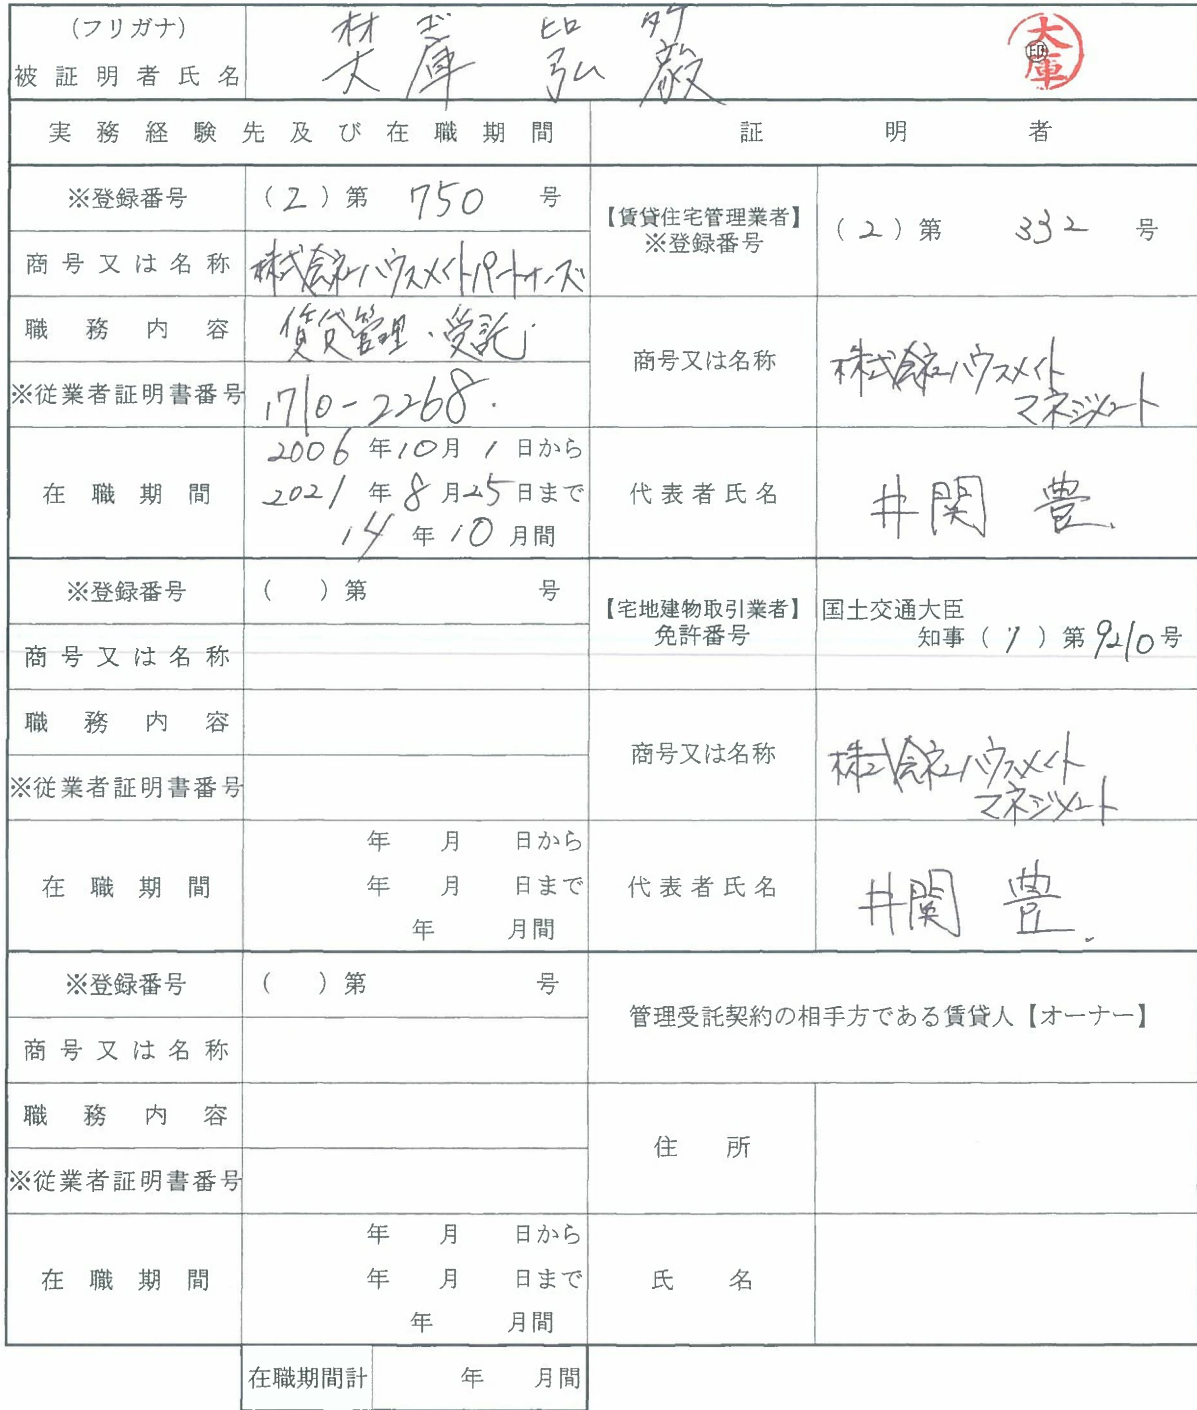 (フリガナ)
オオ ゴ ヒロ タケ
被証明者氏名 大庫 弘毅
印
大庫
実務経験先及び在職期間 証明者
※登録番号 (2)第 750 号
【賃貸住宅管理業者】
※登録番号 (2)第 332 号
商号又は名称 株式会社ハウスメイトパートナーズ
職務内容 賃貸管理・受託
商号又は名称 株式会社ハウスメイト
マネジメント
※従業者証明書番号 1710-2268
在職期間 2006年10月1日から
2021年8月25日まで
14年10月間
代表者氏名 井関 豊
※登録番号 ( )第 号
【宅地建物取引業者】
免許番号
国土交通大臣
知事(7)第9210号
商号又は名称
職務内容
商号又は名称 株式会社ハウスメイト
マネジメント
※従業者証明書番号
在職期間 年 月 日から
年 月 日まで
年 月間
代表者氏名 井関 豊
※登録番号 ( )第 号
管理受託契約の相手方である賃貸人【オーナー】
商号又は名称
職務内容
住所
※従業者証明書番号
在職期間 年 月 日から
年 月 日まで
年 月間
氏名
在職期間計 年 月間